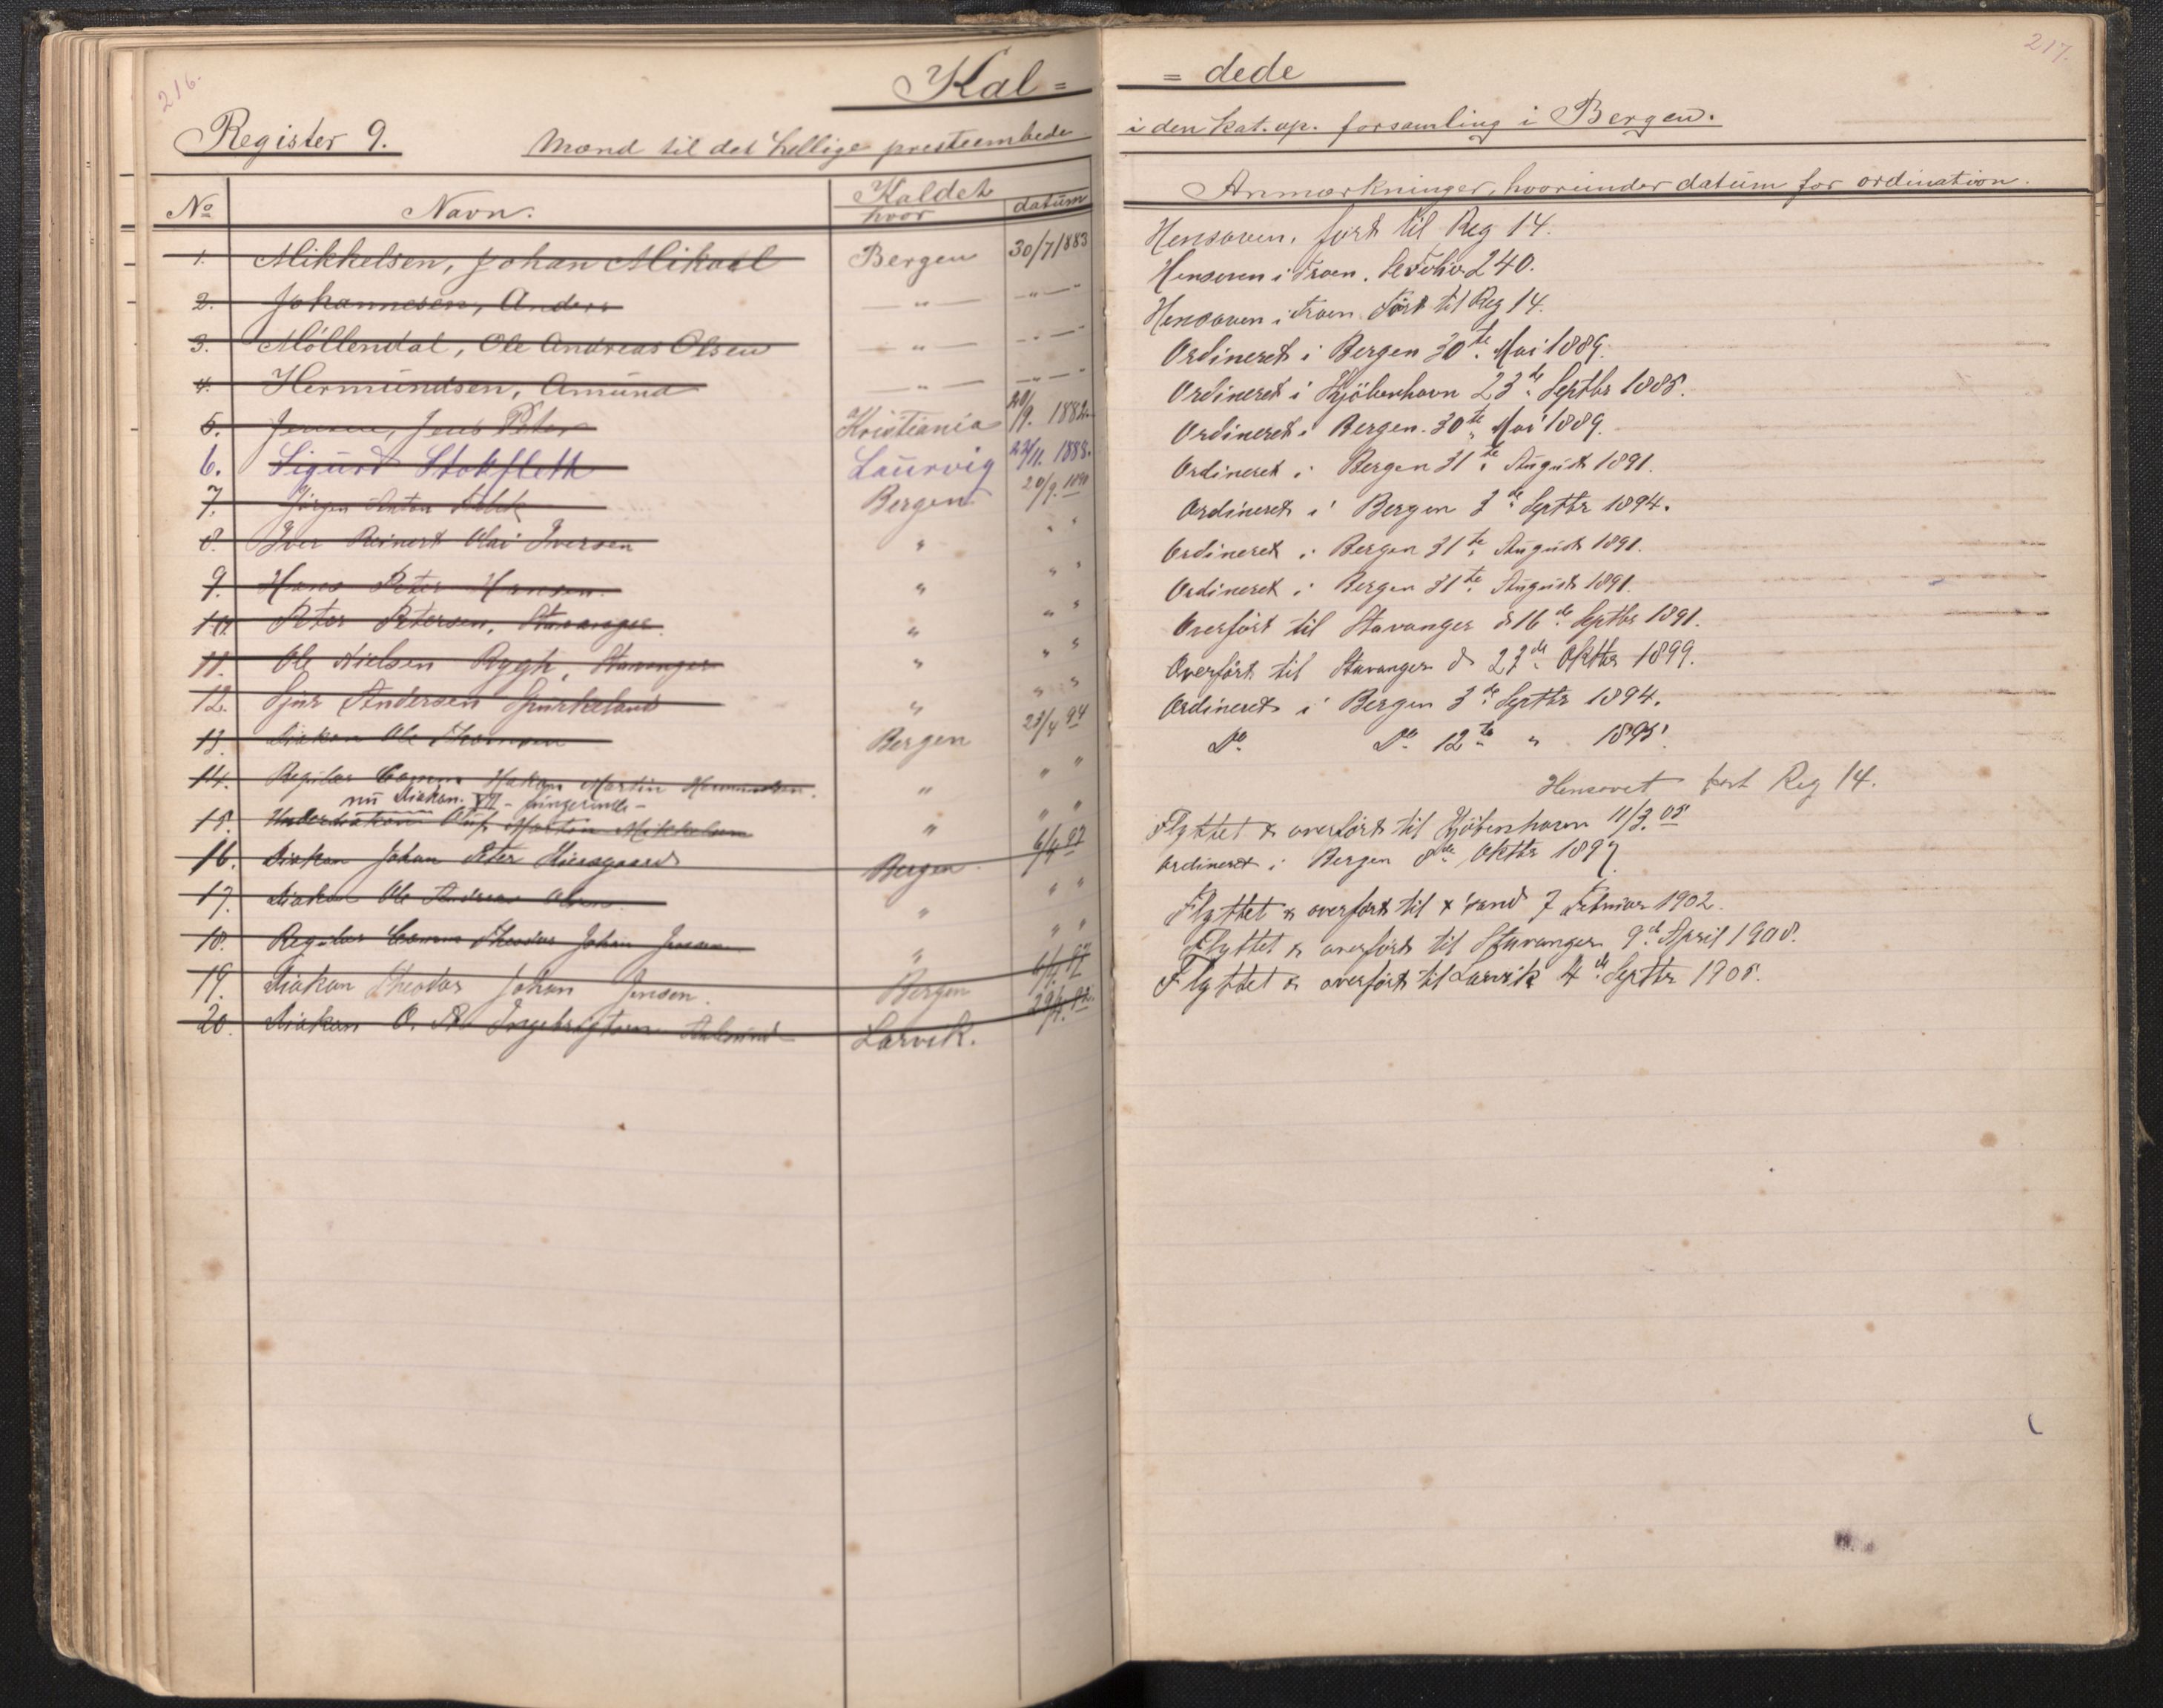 216.
Kal=
Register 9. Mænd til det hellige presteembede
No Navn. Kaldet
hvor datum
1. Mikkelsen, Johan Mikael Bergen 30/7 1883
2. Johannesen, Anders — " — — " —
3. Möllendal, Ole Andreas Olsen — " — — " —
4. Hermundsen, Amund — " — — " —
5. Jensen, Jens Peter Kristiania /9. 1882.
6. Sigurd Stokfleth Laurvig 22/11. 1888.
7. Jörgen Anton Bergen 20/9. 1890
8. Iver Reinert Olai Iversen " " "
9. Hans Peter Hansen. " " "
10. Peter Petersen, Stavanger. " " "
11. Ole Nielsen Rygh, Stavanger " " "
12. Sjur Andersen " " "
13. Diakon Ole Thomsen Bergen 23/4 94
14. Regulær Comm. Hakon Martin Hermundsen. " " "
nu Diakon.
15. Underdiakon Oluf Martin Mikkelsen " " "
16. Diakon Johan Peter Bergen 6/4 97
17. Diakon Ole Andreas Olsen " " "
18. Regulær Comm Theodor Johan Jensen " " "
19. Diakon Theodor Johan Jensen. Bergen 6/4 97
20. Diakon O. Ingebrigtsen Aalesund Larvik.
217.
= dede
i den kat. ap. forsamling i Bergen.
Anmærkninger, hvorunder datum for ordination.
Hensoven, fört til Reg 14.
Hensoven i Troen. Se Folio 240.
Hensoven i Troen. Fört til Reg 14.
Ordineret i Bergen 30te Mai 1889.
Ordineret i Kjöbenhavn 23de Septbr 1885.
Ordineret i Bergen. 30te Mai 1889.
Ordineret i Bergen 31te August 1891.
Ordineret i Bergen 3de Septbr 1894.
Ordineret i Bergen 31te August 1891.
Ordineret i Bergen 31te August 1891.
Overfört til Stavanger d 16de Septbr 1891.
Overfört til Stavanger d 23de Oktbr 1899.
Ordineret i Bergen 3de Septbr 1894.
Do Do 12te " 1895.
Hensovet fört Reg 14.
Flyttet & overfört til Kjöbenhavn 11/3. 05
Ordineret i Bergen 8de Oktbr 1897.
Flyttet & overfört til X sand 7 Februar 1902.
Flyttet & overfört til Stavanger 9de April 1908.
Flyttet & overfört til Larvik 4de Septbr 1905.